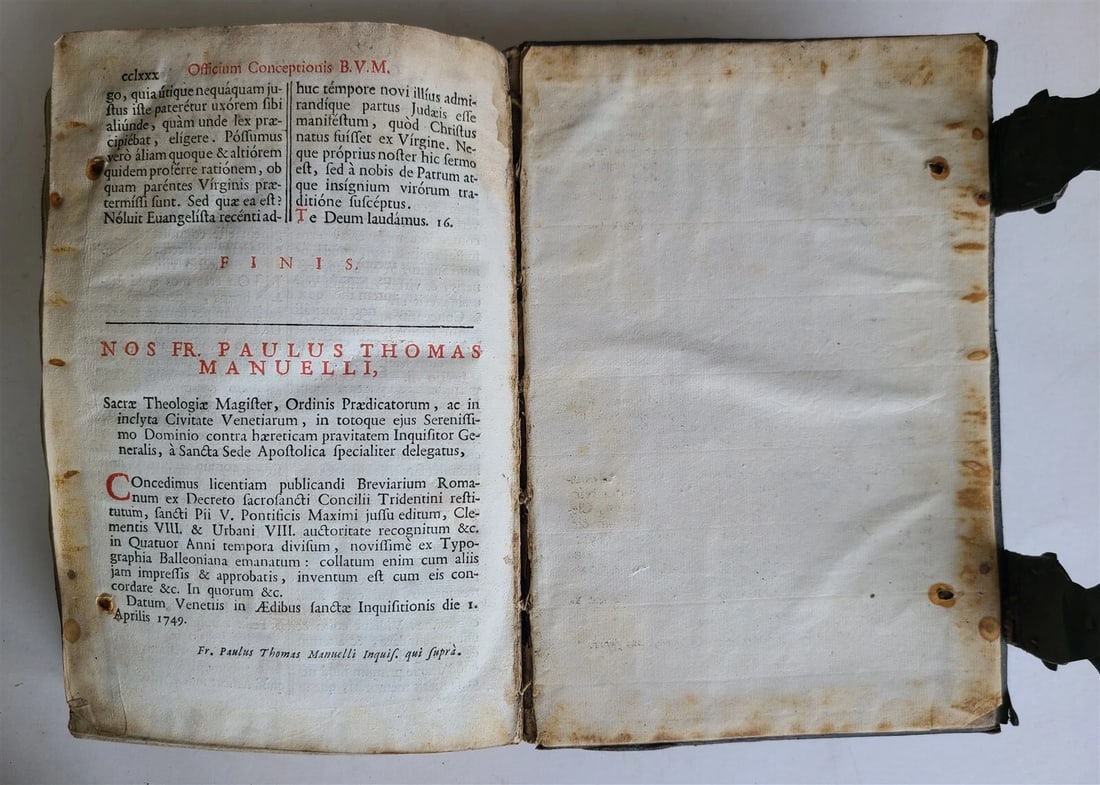 cclxxx Officium Conceptionis B.V.M.
go, quia útique nequáquam ju-
ſtus iſte paterétur uxórem ſibi
aliúnde, quàm unde lex præ-
cipiébat, eligere. Póſſumus
verò áliam quoque & altiórem
quidem proférre ratiónem, ob
quam paréntes Vírginis præ-
termíſſi ſunt. Sed quæ ea eſt?
Nóluit Euangelíſta recénti ad-
huc témpore novi illíus admi-
randíque partus Judæis eſſe
maniféſtum, quòd Chriſtus
natus fuíſſet ex Vírgine. Ne-
que próprius noſter hic ſermo
eſt, ſed à nobis de Patrum at-
que insígnium virórum tra-
ditióne ſuſcéptus.
Te Deum laudámus. 16.
FINIS.
NOS FR. PAULUS THOMAS
MANUELLI,
Sacræ Theologiæ Magiſter, Ordinis Prædicatorum, ac in
inclyta Civitate Venetiarum, in totoque ejus Sereniſſi-
mo Dominio contra hæreticam pravitatem Inquiſitor Ge-
neralis, à Sancta Sede Apoſtolica ſpecialiter delegatus,
COncedimus licentiam publicandi Breviarium Roma-
num ex Decreto ſacroſancti Concilii Tridentini reſti-
tutum, ſancti Pii V. Pontificis Maximi juſſu editum, Cle-
mentis VIII. & Urbani VIII. auctoritate recognitum &c.
in Quatuor Anni tempora diviſum, noviſſimè ex Typo-
graphia Balleoniana emanatum: collatum enim cum aliis
jam impreſſis & approbatis, inventum eſt cum eis con-
cordare &c. In quorum &c.
Datum Venetiis in Ædibus ſanctæ Inquiſitionis die 1.
Aprilis 1749.
Fr. Paulus Thomas Manuelli Inquiſ. qui ſuprà.